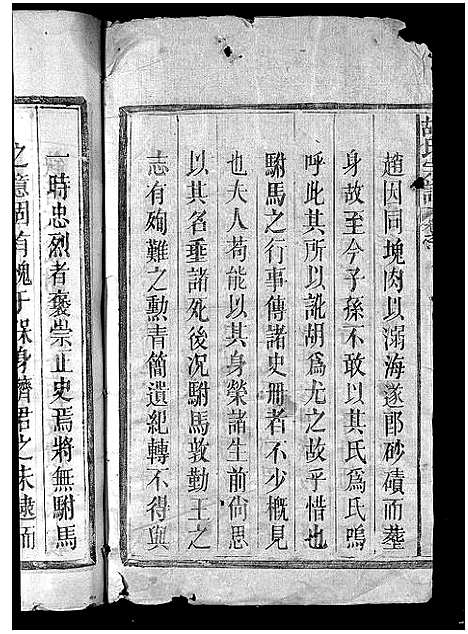 趙因同塊肉以溺海遂郎砂磧而葬
身故至今子孫不敢以其氏爲氏嗚
呼此其所以訛胡爲尤之故乎惜也
駙馬之行事傳諸史册者不少槪見
也大人苟能以其身榮諸生前尙思
以其名垂諸死後况駙馬敦勤王之
志有殉難之勲青簡遺紀轉不得與
一時忠烈者褒崇正史焉將無駙馬
之意固有愧于保身濟君之未逮而